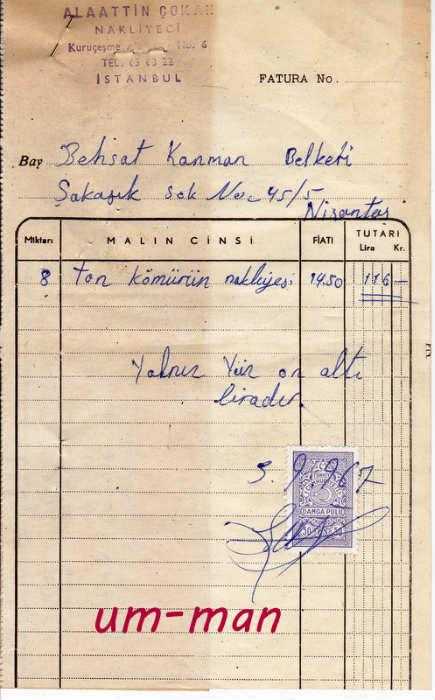 ALAATTİN ÇOKAN
NAKLİYECİ
Kuruçeşme No. 6
TEL. 63 63 22
İSTANBUL
FATURA No.
Bay Behsat Kanman
Sok No. 45/5
Nişantaş
Miktarı MALIN CİNSİ FİATI TUTARI
Lira Kr.
8 ton kömürün nakliyesi 14.50 116 —
Yalnız Yüz on altı
liradır.
9.967
DAMGA PULU
um-man